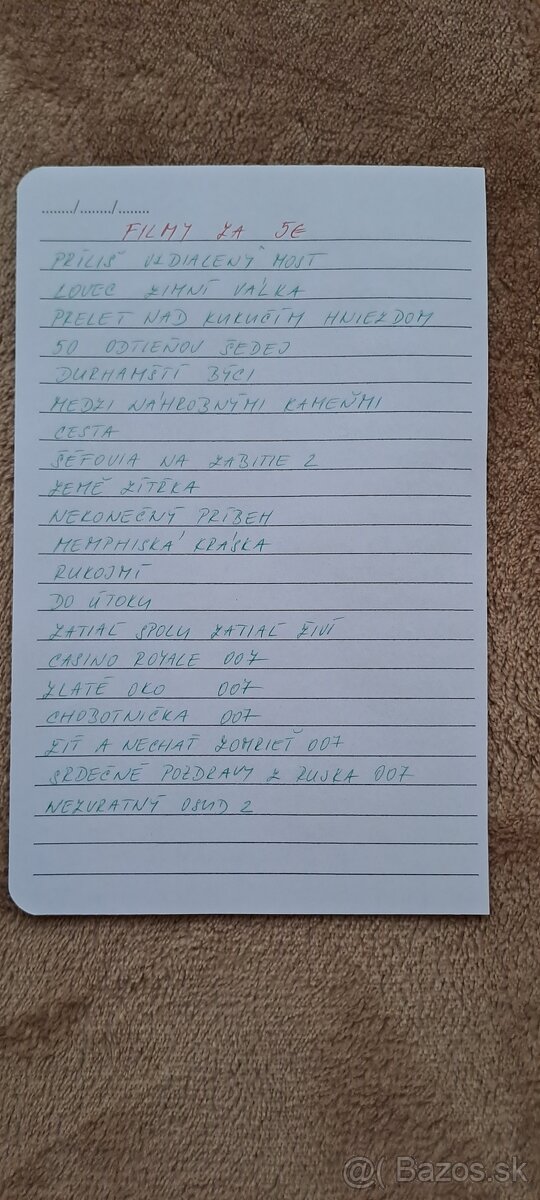 ......../......../........
FILMY ZA 5€
PRÍLIŠ VZDIALENÝ MOST
LOVEC ZIMNÍ VÁLKA
PRELET NAD KUKUČÍM HNIEZDOM
50 ODTIEŇOV ŠEDEJ
DURHAMŠTÍ BÝCI
MEDZI NÁHROBNÝMI KAMEŇMI
CESTA
ŠÉFOVIA NA ZABITIE 2
ZEMĚ ZÍTŘKA
NEKONEČNÝ PRÍBEH
MEMPHISKÁ KRÁSKA
RUKOJMÍ
DO ÚTOKU
ZATIAĽ SPOLU ZATIAĽ ŽIVÍ
CASINO ROYALE 007
ZLATÉ OKO 007
CHOBOTNIČKA 007
ŽIŤ A NECHAŤ ZOMRIEŤ 007
SRDEČNÉ POZDRAVY Z RUSKA 007
NEZVRATNÝ OSUD 2
@( Bazos.sk